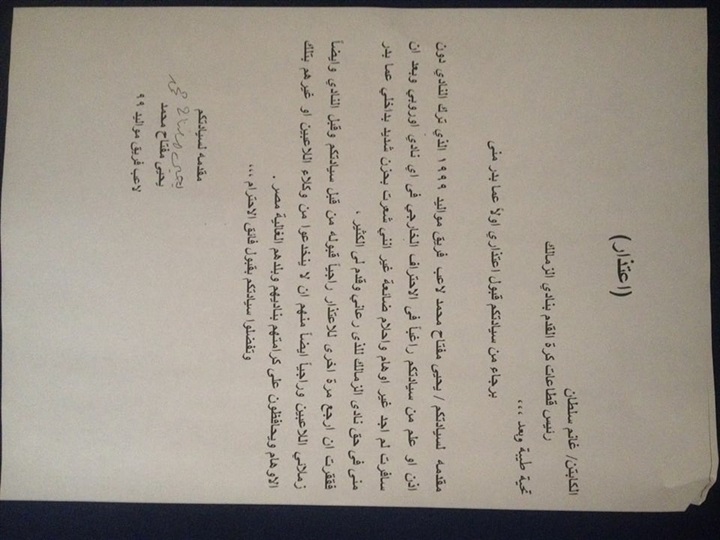 (اعتذار)
الكابتن/ غانم سلطان
رئيس قطاعات كرة القدم بنادي الزمالك
تحية طيبة وبعد ،،،
برجاء من سيادتكم قبول اعتذاري اولاً عما بدر منى
مقدمه لسيادتكم / يحيى مفتاح محمد لاعب فريق مواليد ١٩٩٩ الذي ترك النادي دون
اذن او علم من سيادتكم راغباً فى الاحتراف الخارجي فى اي نادي اوروبي وبعد ان
سافرت لم اجد غير اوهام واحلام ضائعة غير انني شعرت بحزن شديد بداخلي عما بدر
منى فى حق نادى الزمالك للذى رعاني وقدم لى الكثير ،
فقررت ان ارجع مرة اخرى للاعتذار راجياً قبوله من قبل سيادتكم وقبل النادي وايضاً
زملائي اللاعبين وراجياً ايضاً منهم ان لا ينخدعوا من وكلاء اللاعبين او غيرهم بتلك
الاوهام ويحافظون على كرامتهم بناديهم وبلدهم الغالية مصر .
وتفضلوا سيادتكم بقبول فائق الاحترام ،،،
مقدمه لسيادتكم
يحيى مفتاح محمد
يحيى مفتاح محمد
لاعب فريق مواليد ٩٩